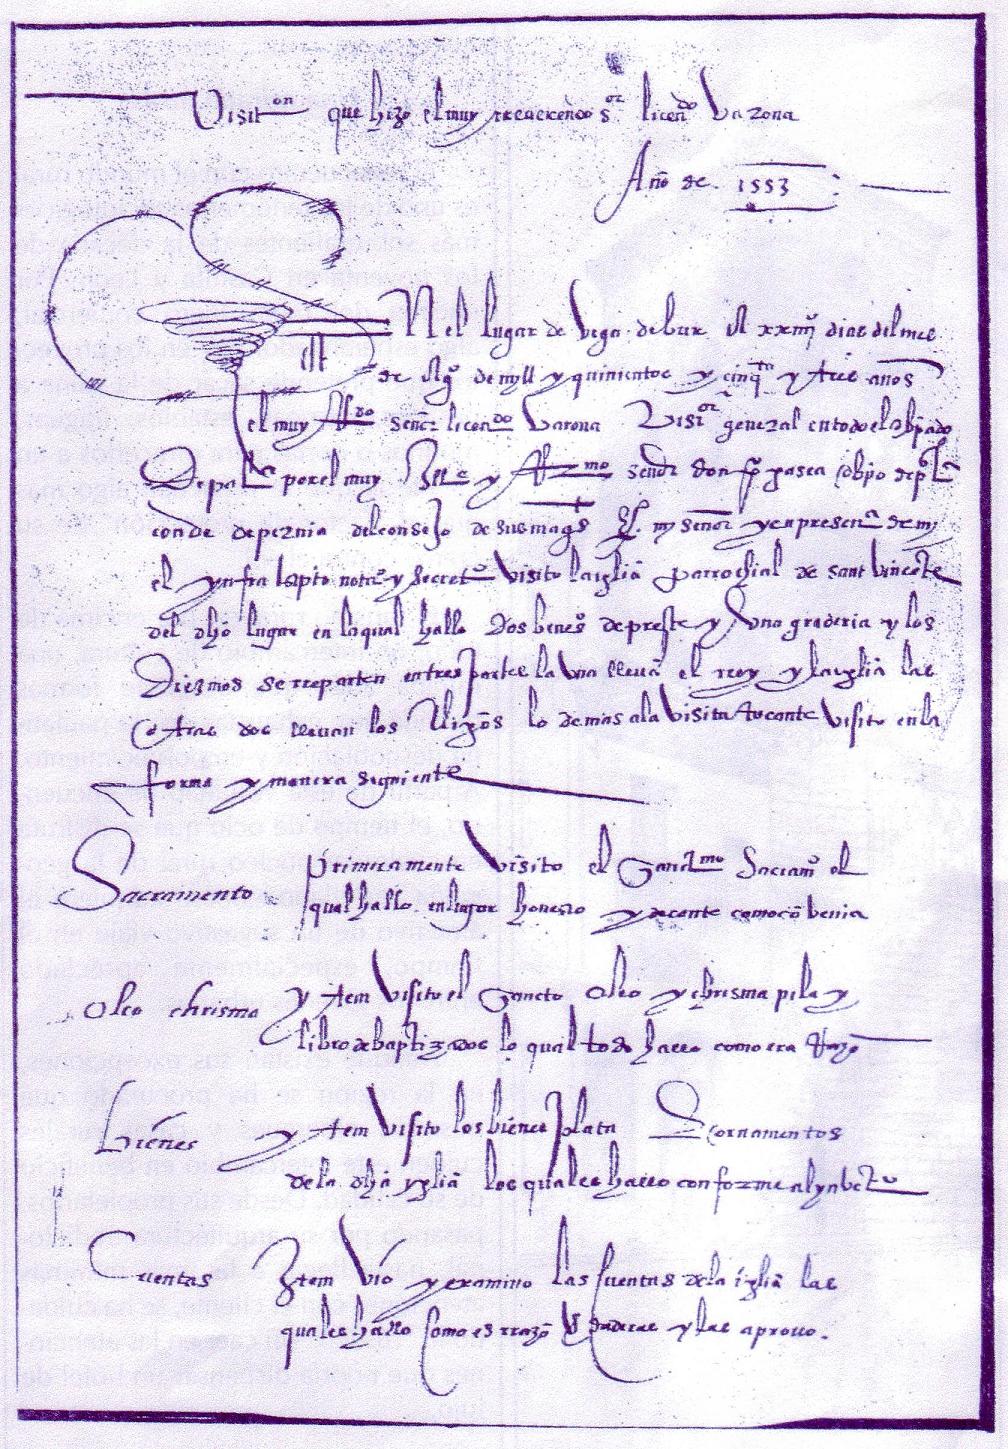 Visiton que hizo el muy rreverendo sor licendo Vazona
Año de 1553
N el lugar de Vega de bur A xxiiij dias del mes
de Ago de myll y quinientos y cinqta y tres años
el muy Rdo señor licendo Varona Visior general en todo el obpado
De pala por el muy Ille y Rmo señor don po gasca obpo de pla
conde de peznia del consejo de sus mags my señor y en presena de mj
el ynfra scpto notao y secreto Visito la iglia parrochial de sant vincete
del dho lugar en la qual hallo Dos benefos de preste y Vna graderia y los
Diezmos se rreparten en tres partes la Vna lleva el rrey y la yglia las
otras dos llevan los clligos lo demas a la visita tocante Visito en la
forma y manera siguiente
Sacramento primeramente Visito el Sanctmo Sacramo el
qual hallo en lugar honesto y decente como cōbenia
oleo chrisma ytem Visito el Sancto oleo y chrisma pila y
libro de baptizados lo qual todo hallo como era Razō
bienes ytem Visito los bienes plata Ecornamentos
de la dha yglia los quales hallo conforme al ynbeto
Cuentas Ytem Vio y examino las cuentas de la iglia las
quales hallo como es rrazō y las aprovo.